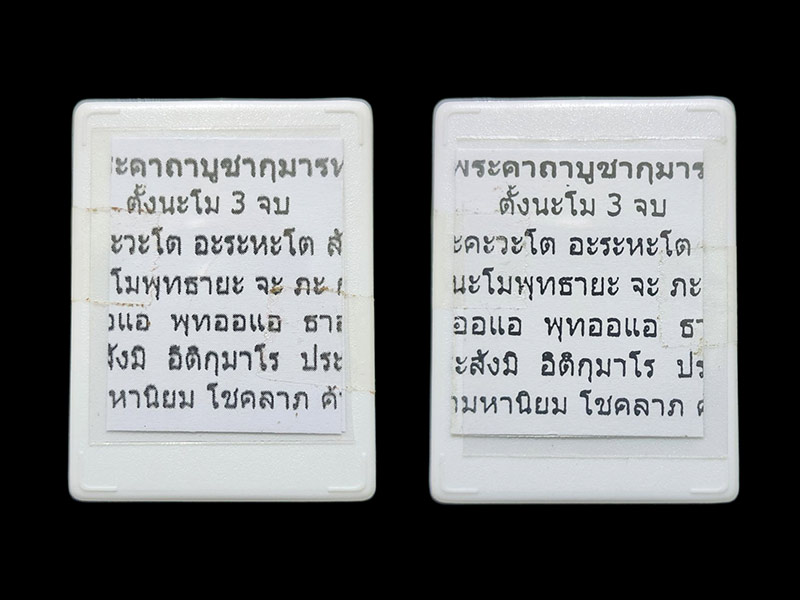 ระคาถาบูชากุมารท
ตั้งนะโม 3 จบ
ะวะโต อะระหะโต สั
โมพุทธายะ จะ ภะ
อแอ พุทออแอ ธาอ
สังมิ อิติกุมาโร ประ
หานิยม โชคลาภ ค้า
พระคาถาบูชากุมาร
ตั้งนะโม 3 จบ
ะคะวะโต อะระหะโต
นะโมพุทธายะ จะ ภะ
ออแอ พุทออแอ ธา
ะสังมิ อิติกุมาโร ประ
ามหานิยม โชคลาภ ค